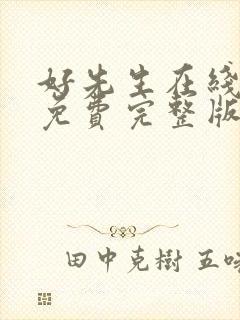 好先生在线
免費完整版
田中克樹 五味